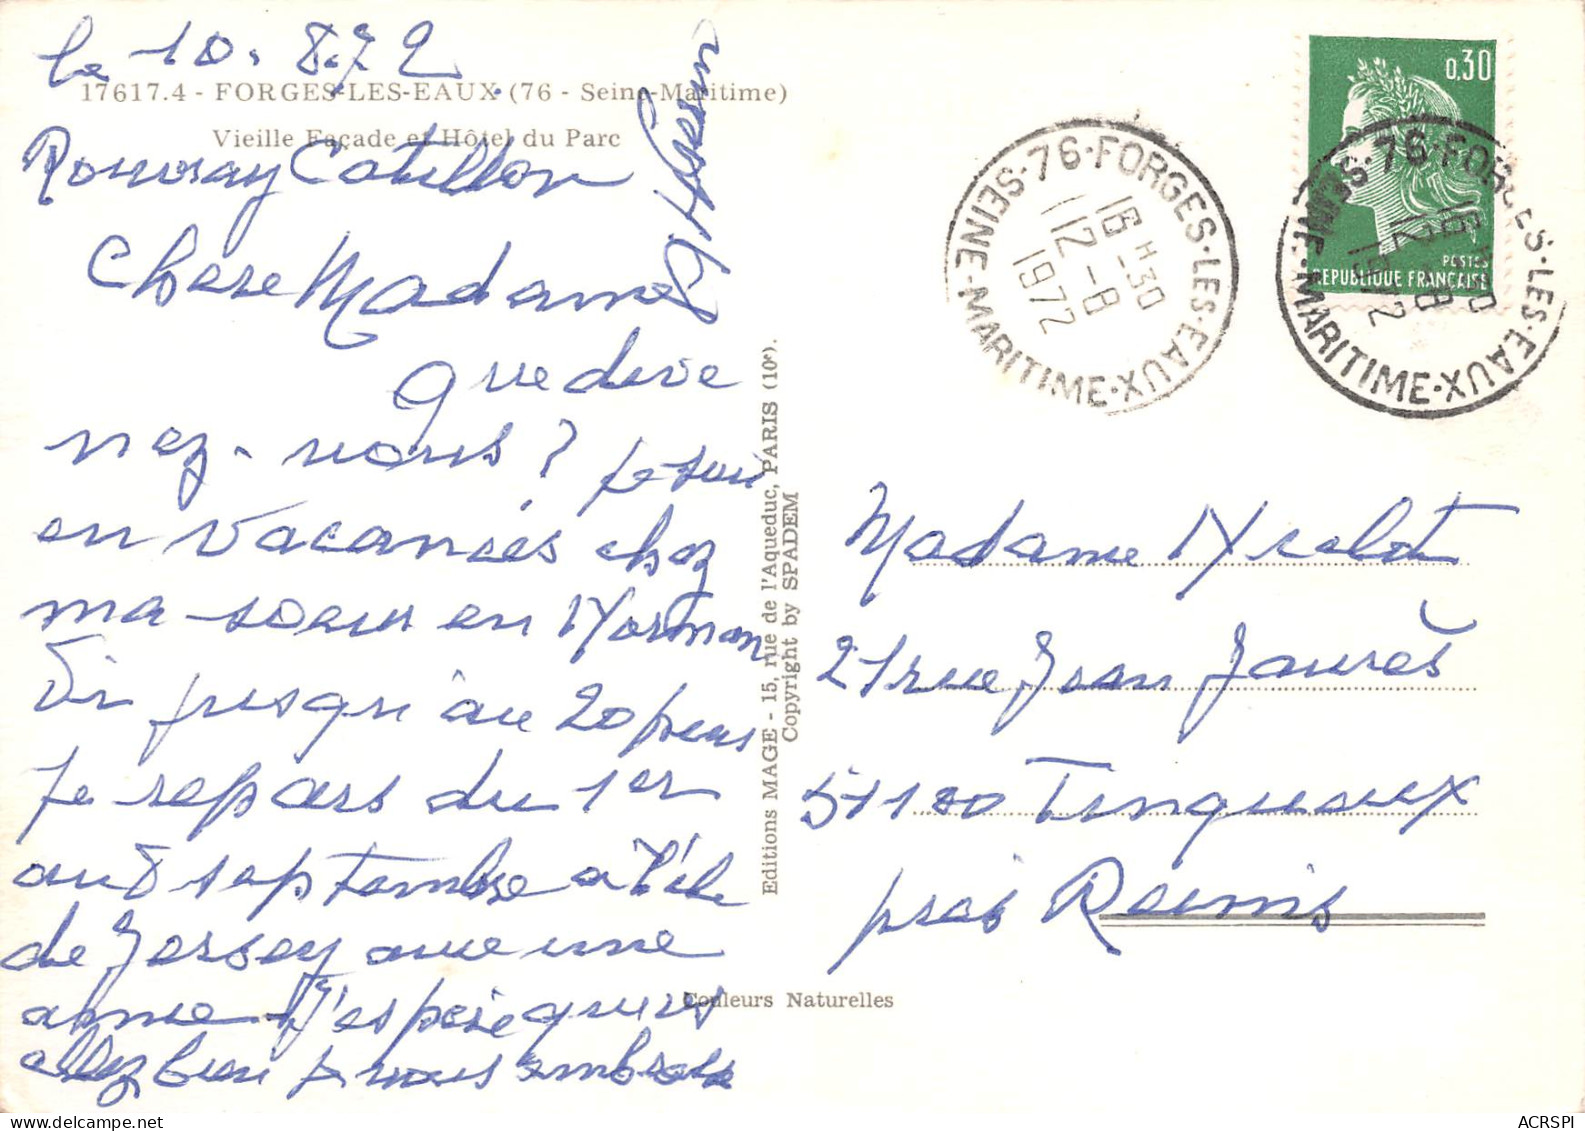 le 10.8.72
17617.4 - FORGES-LES-EAUX (76 - Seine-Maritime)
Vieille Façade et Hôtel du Parc
Rouvray Catillon
Chere Madame
que deve
nez-nous ? je suis
en vacances chez
ma soeur en Norman
die jusqu'au 20 puis
Je repars du 1er
au 8 septembre à l'île
de Jersey avec une
amie J'espère que vs
allez bien je vous embrasse
Editions MAGE - 15, rue de l'Aqueduc, PARIS (10e).
Copyright by SPADEM
Couleurs Naturelles
76·FORGES·LES·EAUX·SEINE-MARITIME
16 H 30
12-8
1972
0,30
POSTES
REPUBLIQUE FRANÇAISE
76·FORGES·LES·EAUX·SEINE-MARITIME
16 H 30
12-8
1972
Madame
21 rue Jean Jaurès
51100 Tinqueux
près Reims
ACRSPI